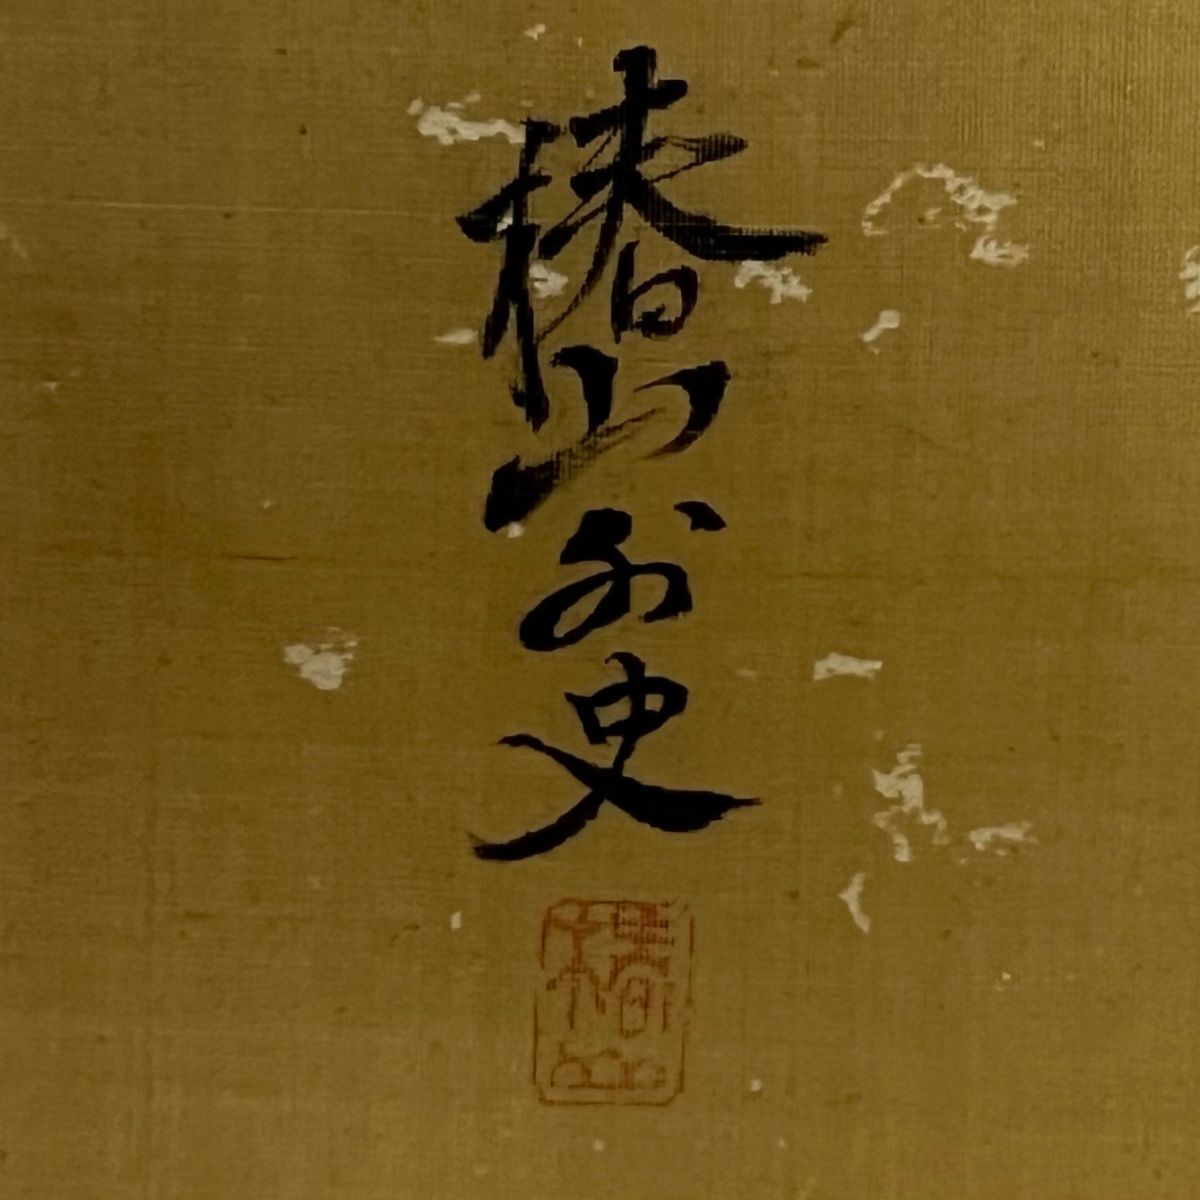 椿山外史